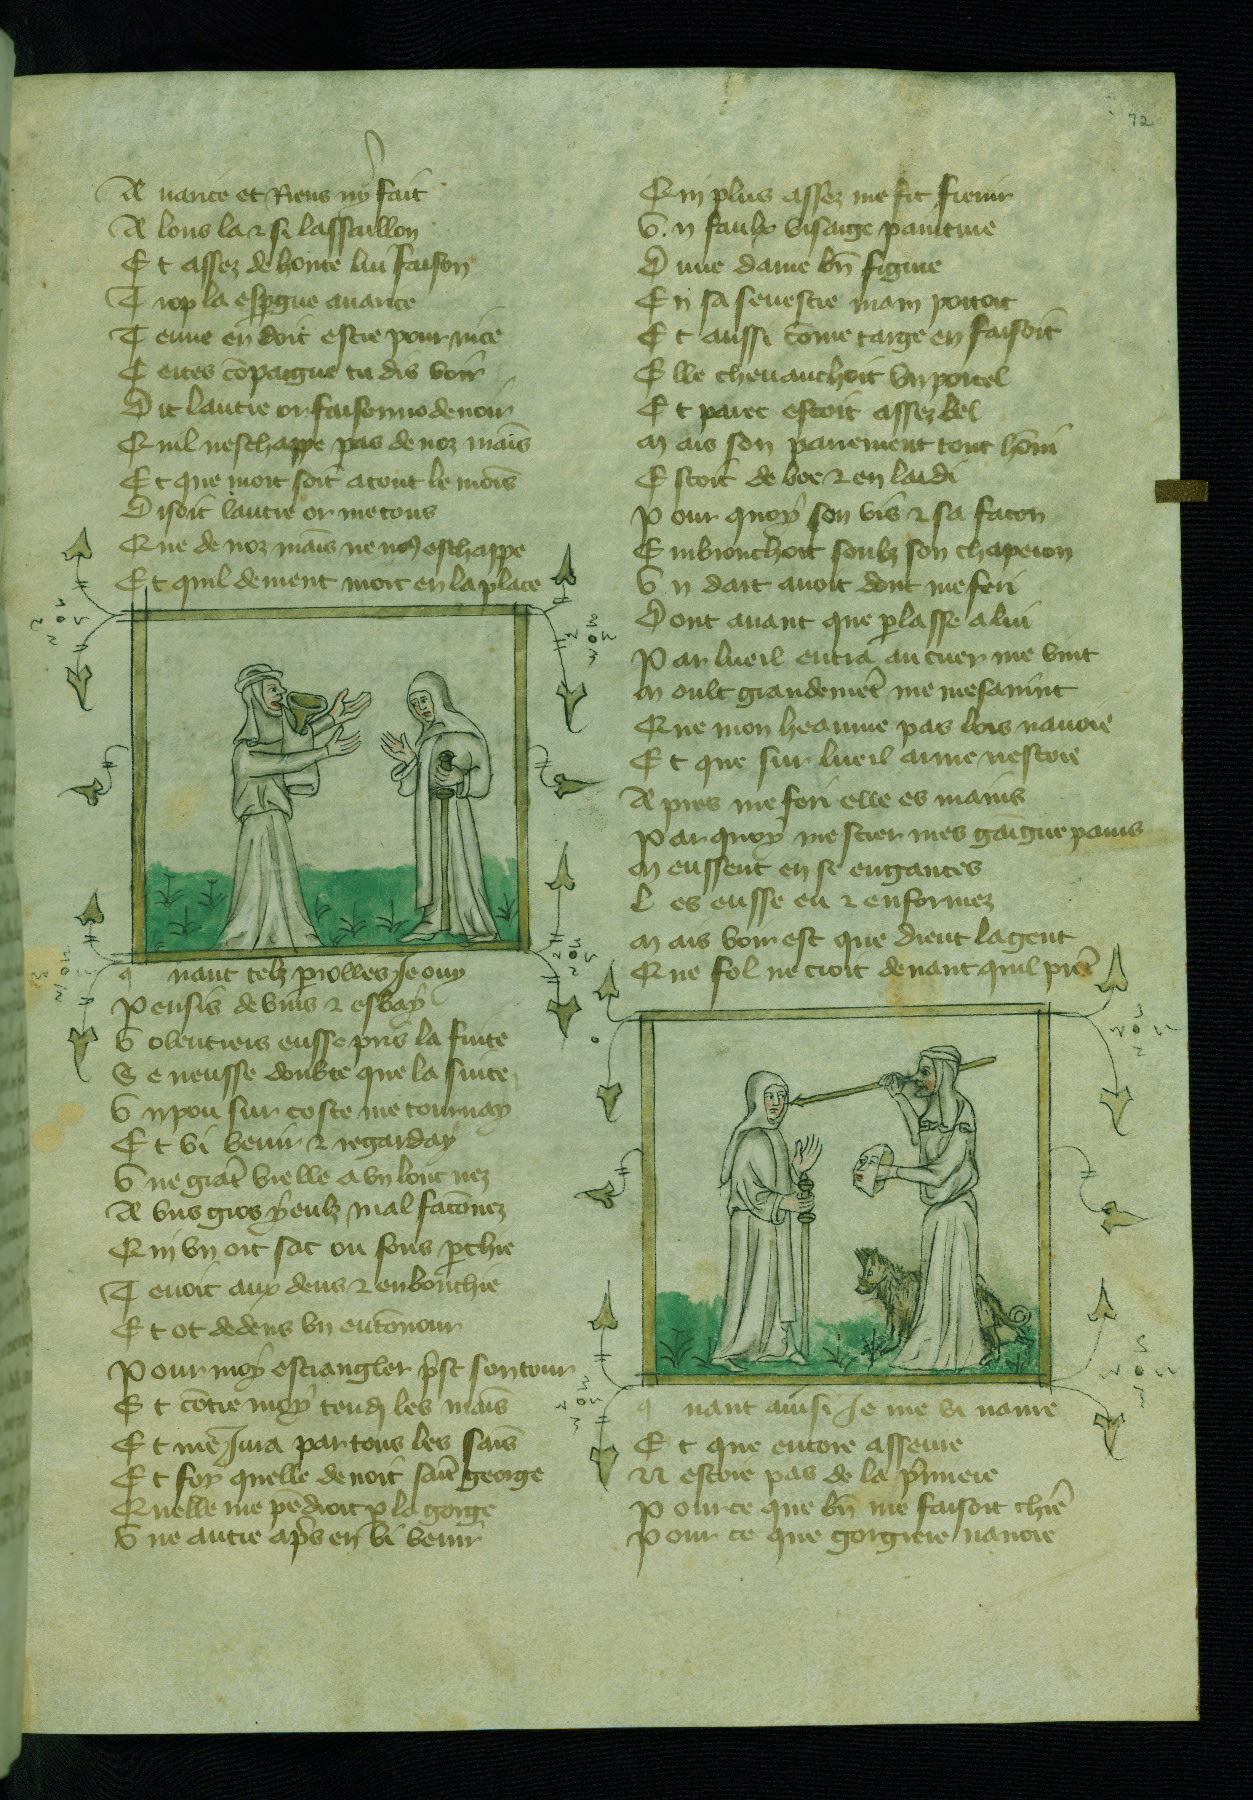 72
A uarice et Riens ny fait
A lons la ⁊ si lassaillon
E t assez de honte lui faison
T rop la espgue auance
T enue en doit estre pour nice
C ertes cōpaigne tu dis voir
D it lautre or faison no deuoir
Q uil neschappe pas de noz mais̄
E t que mort soit a tout le mois̄
D isoit lautre or metons
Q ue de noz mais̄ ne no9 eschappe
E t quil demeut mort en la place
q uant telz p̱olles Je ouy
P ensis deuins ⁊ esbay
V olentiers eusse pris la fuite
S e neusse doubte que la suite
V n pou sur coste me tournay
E t vi venir ⁊ regarday
V ne grāt vielle a vn lonc nez
A vns gros yeulx mal facōnez
Q ui vn ort sac ou fons p̱chie
T enoit aux dens ⁊ enbouchie
E t ot dedens vn entōnour
P our moy estrangler pr̄st son tour
E t cōtre moy tendy les mais̄
E t mē Jura par tous les sais̄
E t foy quelle deuoit sait̄ george
Q uelle me pēdroit p̱ la gorge
V ne autre ap̄s en vi venir
Q ui plus assez me fit fremir
V. n faulx visaige painture
D une dame bn̄ figure
E n sa senestre main portoit
E t aussi cōme targe en faisoit
E lle cheuauchoit vn porcel
E t paree estoit assez bel
M ais son parement tout hōni
E stoit de boe ⁊ en laidi
P our quoy son vis ⁊ sa facon
E mbronchoit soubz son chaperon
V n dart auoit dont me feri
D ont auant que p̱lasse a lui
P ar lueil entra au cuer me vint
M oult grandemēt me mesauint
Q ue mon heaume pas lors nauoie
E t que sur lueil arme nestoie
A pres me feri elle es mains
P ar quoy mestier mes gaigne pains
M eussent en se en gances
L es eusse eu ⁊ enformez
M ais voir est que dient la gent
Q ue fol ne croit deuant quil prēt
q uant ainsi Je me vi naure
E t que encore asseure
N estoie pas de la p̄miere
P our ce que bn̄ me faisoit chiē
P our ce que gorgiere nauoie